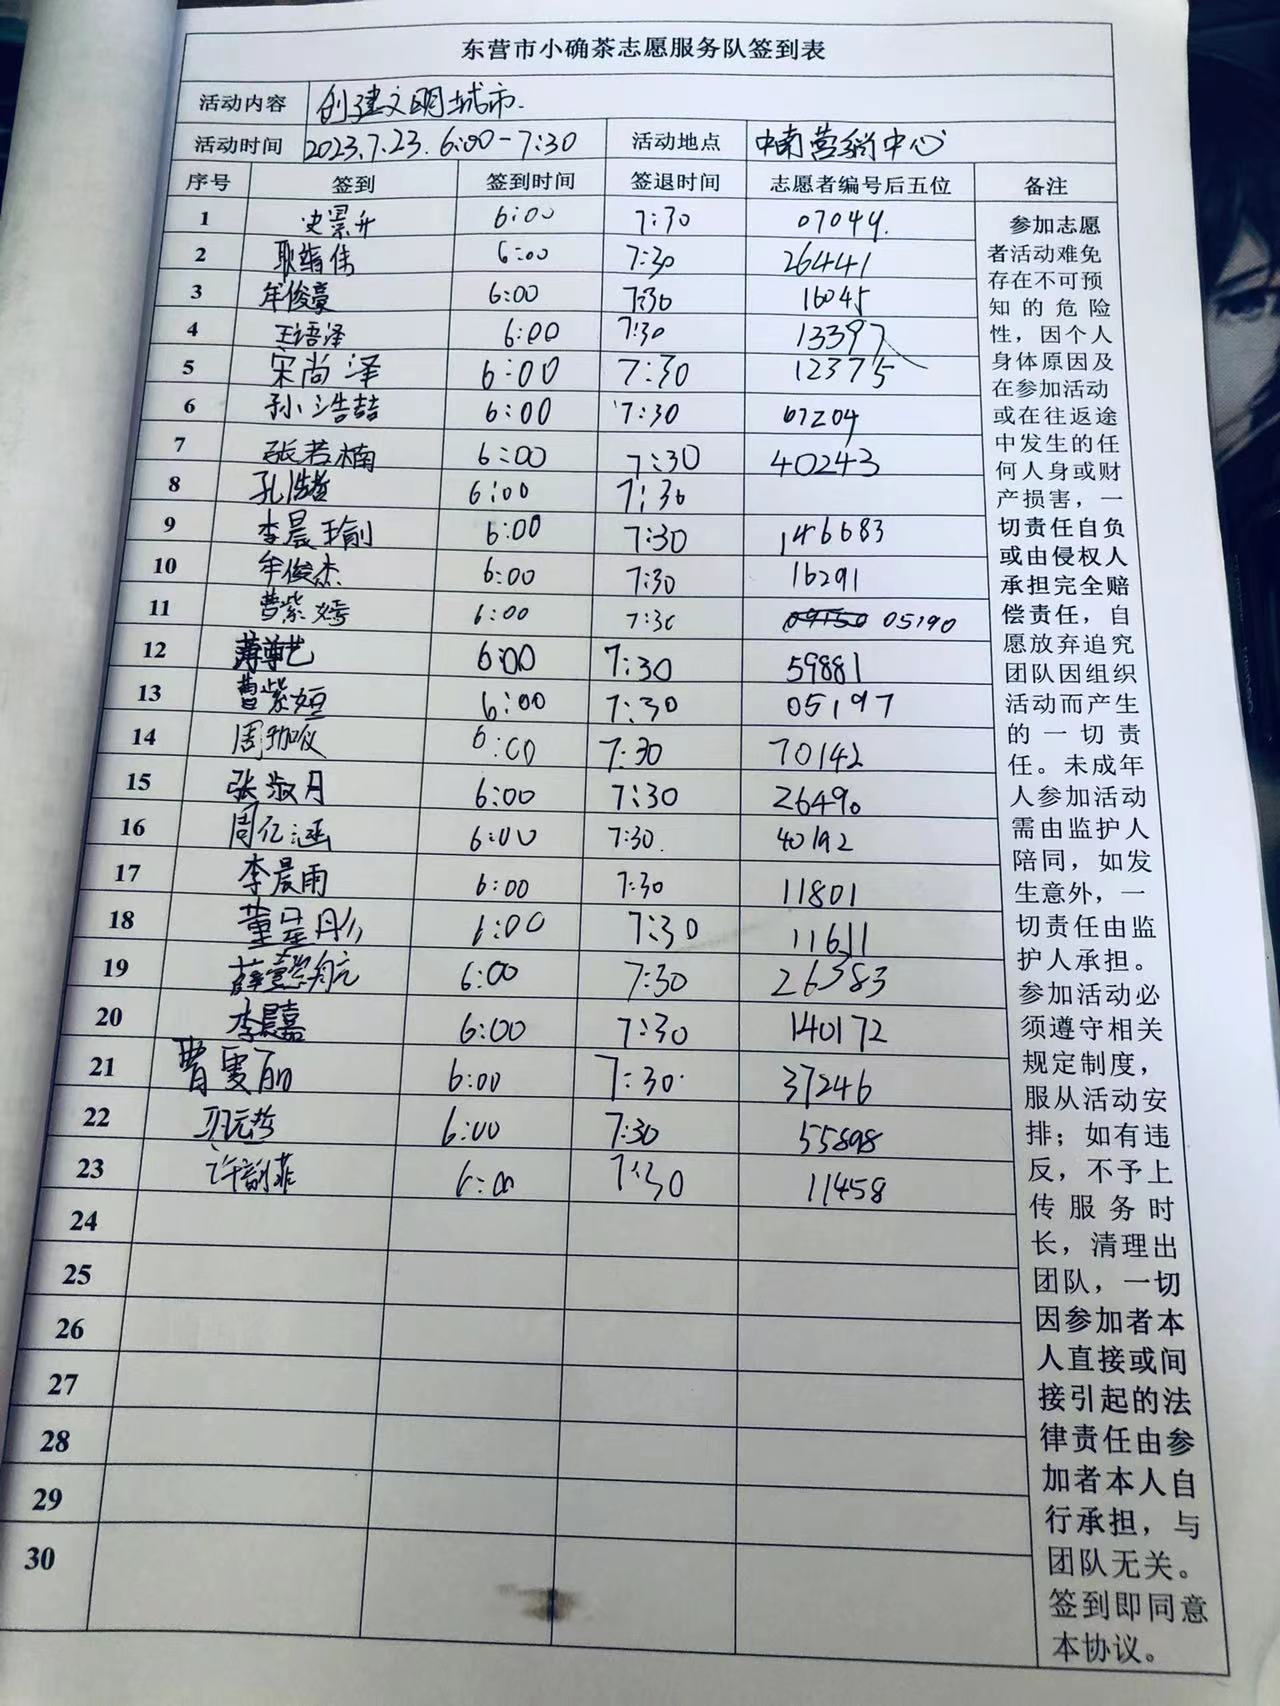 东营市小确茶志愿服务队签到表
活动内容 创建文明城市.
活动时间 2023.7.23. 6:00-7:30 活动地点 中南营销中心
序号 签到 签到时间 签退时间 志愿者编号后五位 备注
1 史景升 6:00 7:30 07044.
2 耿 伟 6:00 7:30 26441
3 牟俊豪 6:00 7:30 16045
4 王语泽 6:00 7:30 13397
5 宋尚泽 6:00 7:30 12375
6 孙浩喆 6:00 7:30 07204
7 张若楠 6:00 7:30 40243
8 孔浩哲 6:00 7:30
9 李晨瑜 6:00 7:30 146683
10 牟俊杰 6:00 7:30 16291
11 曹紫嫣 6:00 7:30 05190
12 薄尊艺 6:00 7:30 59881
13 曹紫姮 6:00 7:30 05197
14 周珈仪 6:00 7:30 70142
15 张淑月 6:00 7:30 26490
16 周亿涵 6:00 7:30. 40192
17 李晨雨 6:00 7:30 11801
18 董星彤 6:00 7:30 11611
19 薛懿航 6:00 7:30 26383
20 李晨嘉 6:00 7:30 140172
21 曹雯丽 6:00 7:30 37246
22 6:00 7:30 55898
23 许韵菲 6:00 7:30 11458
24
25
26
27
28
29
30
参加志愿
者活动难免
存在不可预
知的危险
性，因个人
身体原因及
在参加活动
或在往返途
中发生的任
何人身或财
产损害，一
切责任自负
或由侵权人
承担完全赔
偿责任，自
愿放弃追究
团队因组织
活动而产生
的一切责
任。未成年
人参加活动
需由监护人
陪同，如发
生意外，一
切责任由监
护人承担。
参加活动必
须遵守相关
规定制度，
服从活动安
排；如有违
反，不予上
传服务时
长，清理出
团队，一切
因参加者本
人直接或间
接引起的法
律责任由参
加者本人自
行承担，与
团队无关。
签到即同意
本协议。